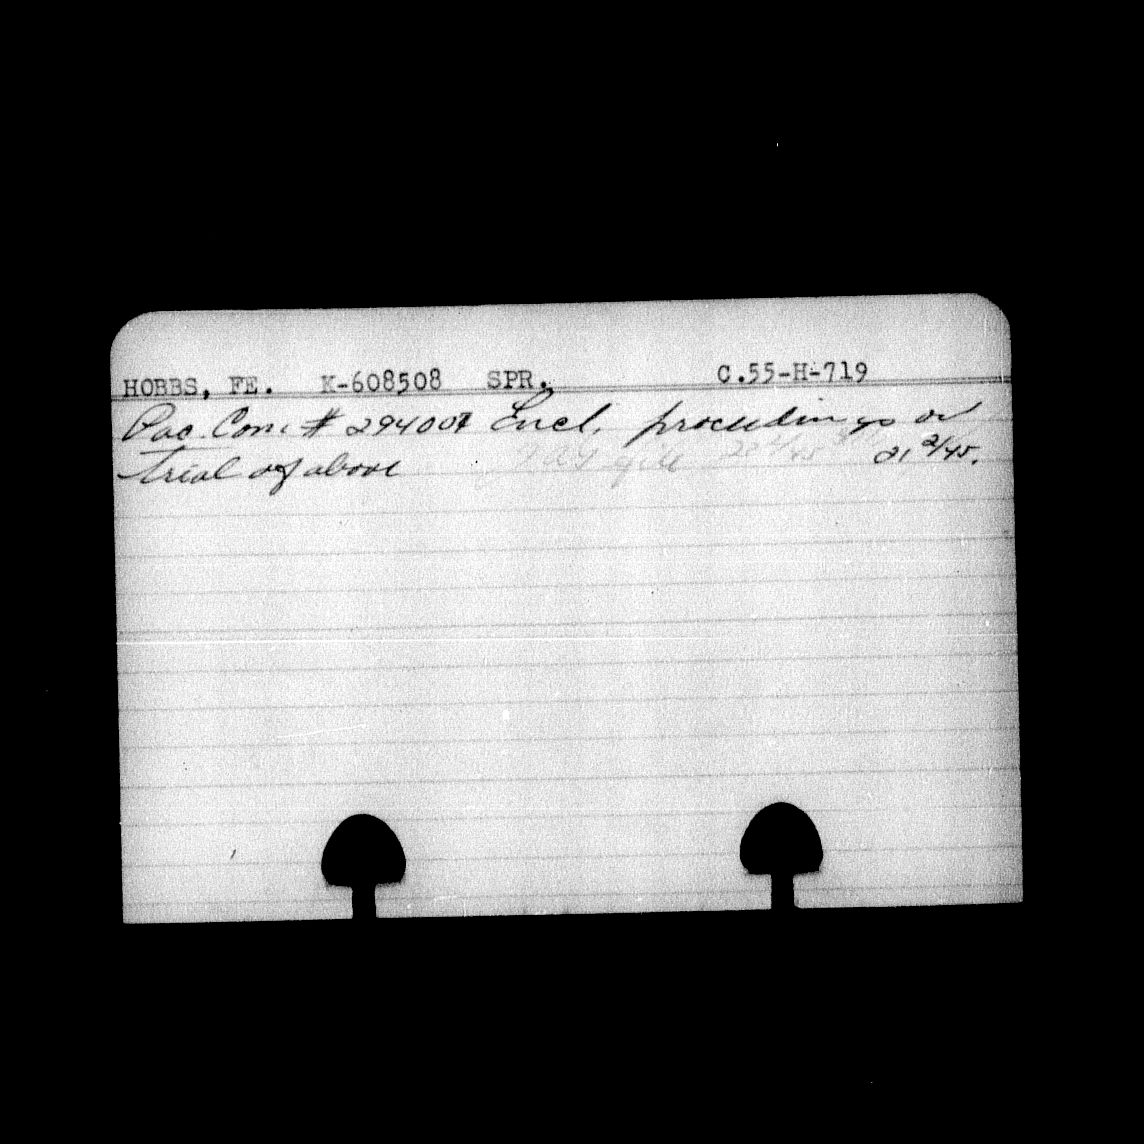 HOBBS, FE. K-608508 SPR. C.55-H-719
Pac. Com. # 294007 Encl. proceedings on
trial of above 21 2/45.